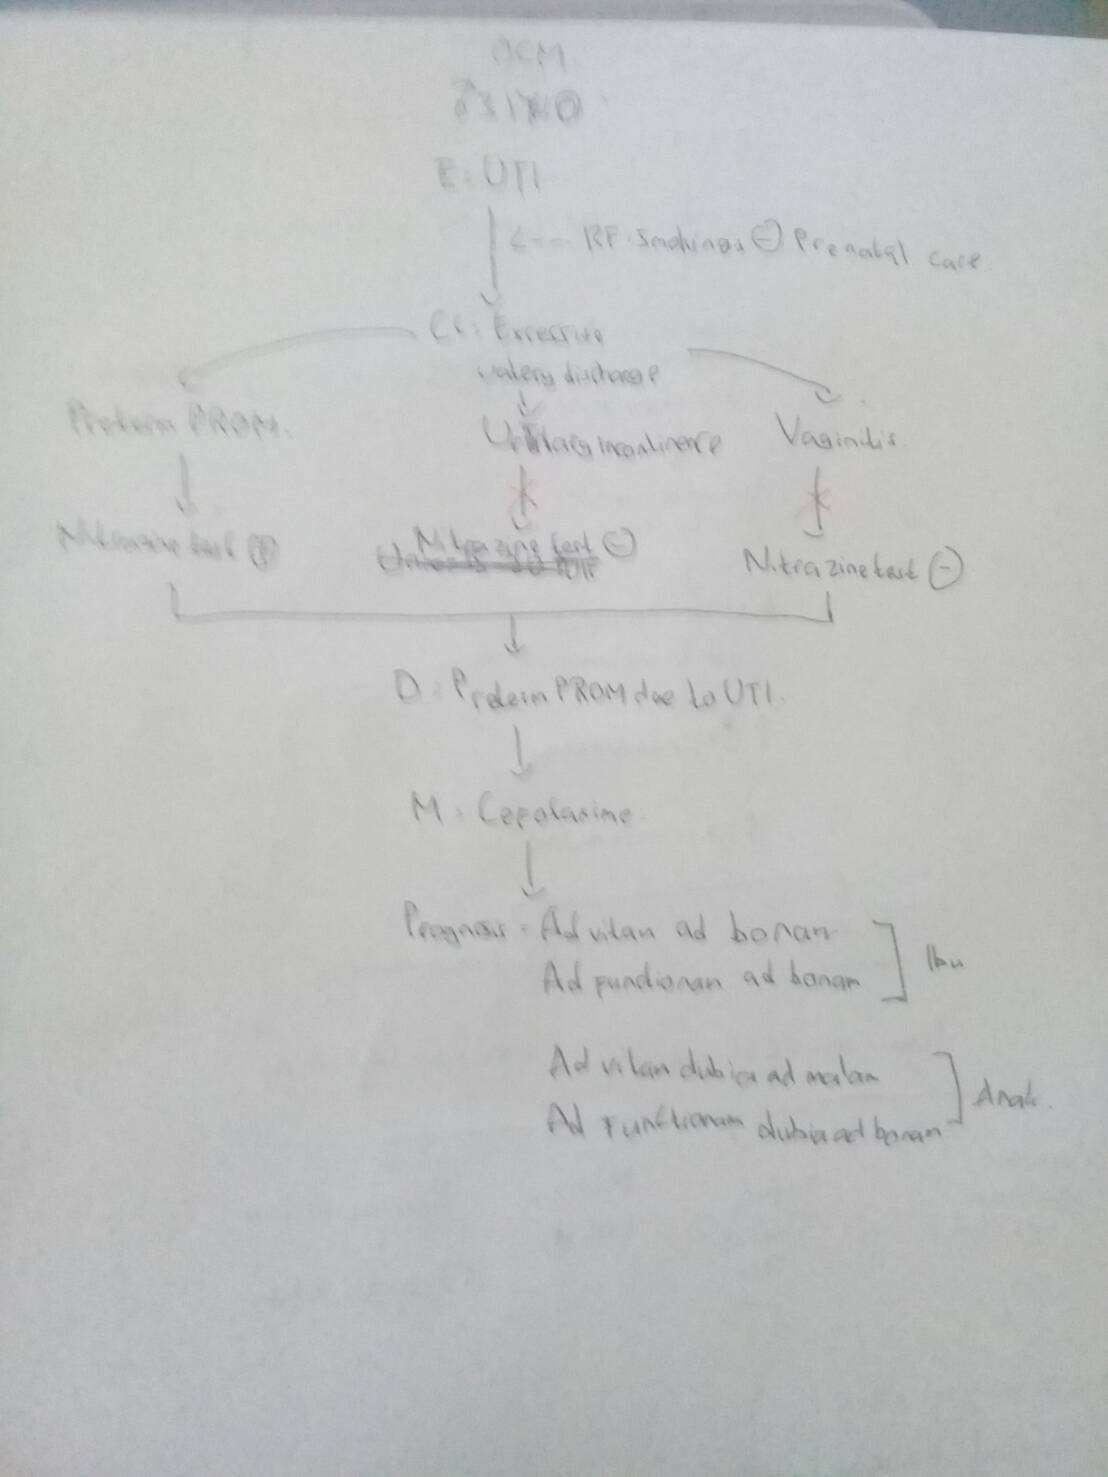 E: UTI
RF: Smokings ⊖ Prenatal care
CC: Excessive
watery discharge
Preterm PROM.
Urinary incontinence
Vaginitis.
Nitrazine test ⊕
Nitrazine test ⊖
Nitrazine test ⊖
D: Preterm PROM due to UTI.
M: Cefotaxime.
Prognosis: Ad vitam ad bonam
Ad functionam ad bonam
Ibu
Ad vitam dubia ad malam
Ad functionam dubia ad bonam
Anak.